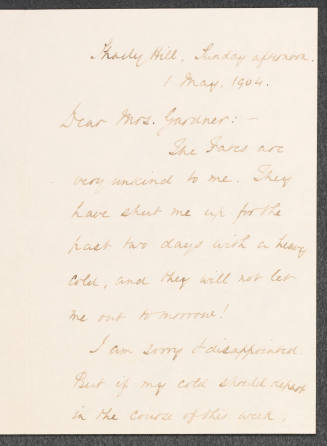 Shady Hill, Sunday afternoon.
1 May, 1904.
Dear Mrs. Gardner: —
The Fates are
very unkind to me. They
have shut me up for the
past two days with a heavy
cold, and they will not let
me out tomorrow!
I am sorry & disappointed.
But if my cold should depart
in the course of this week,